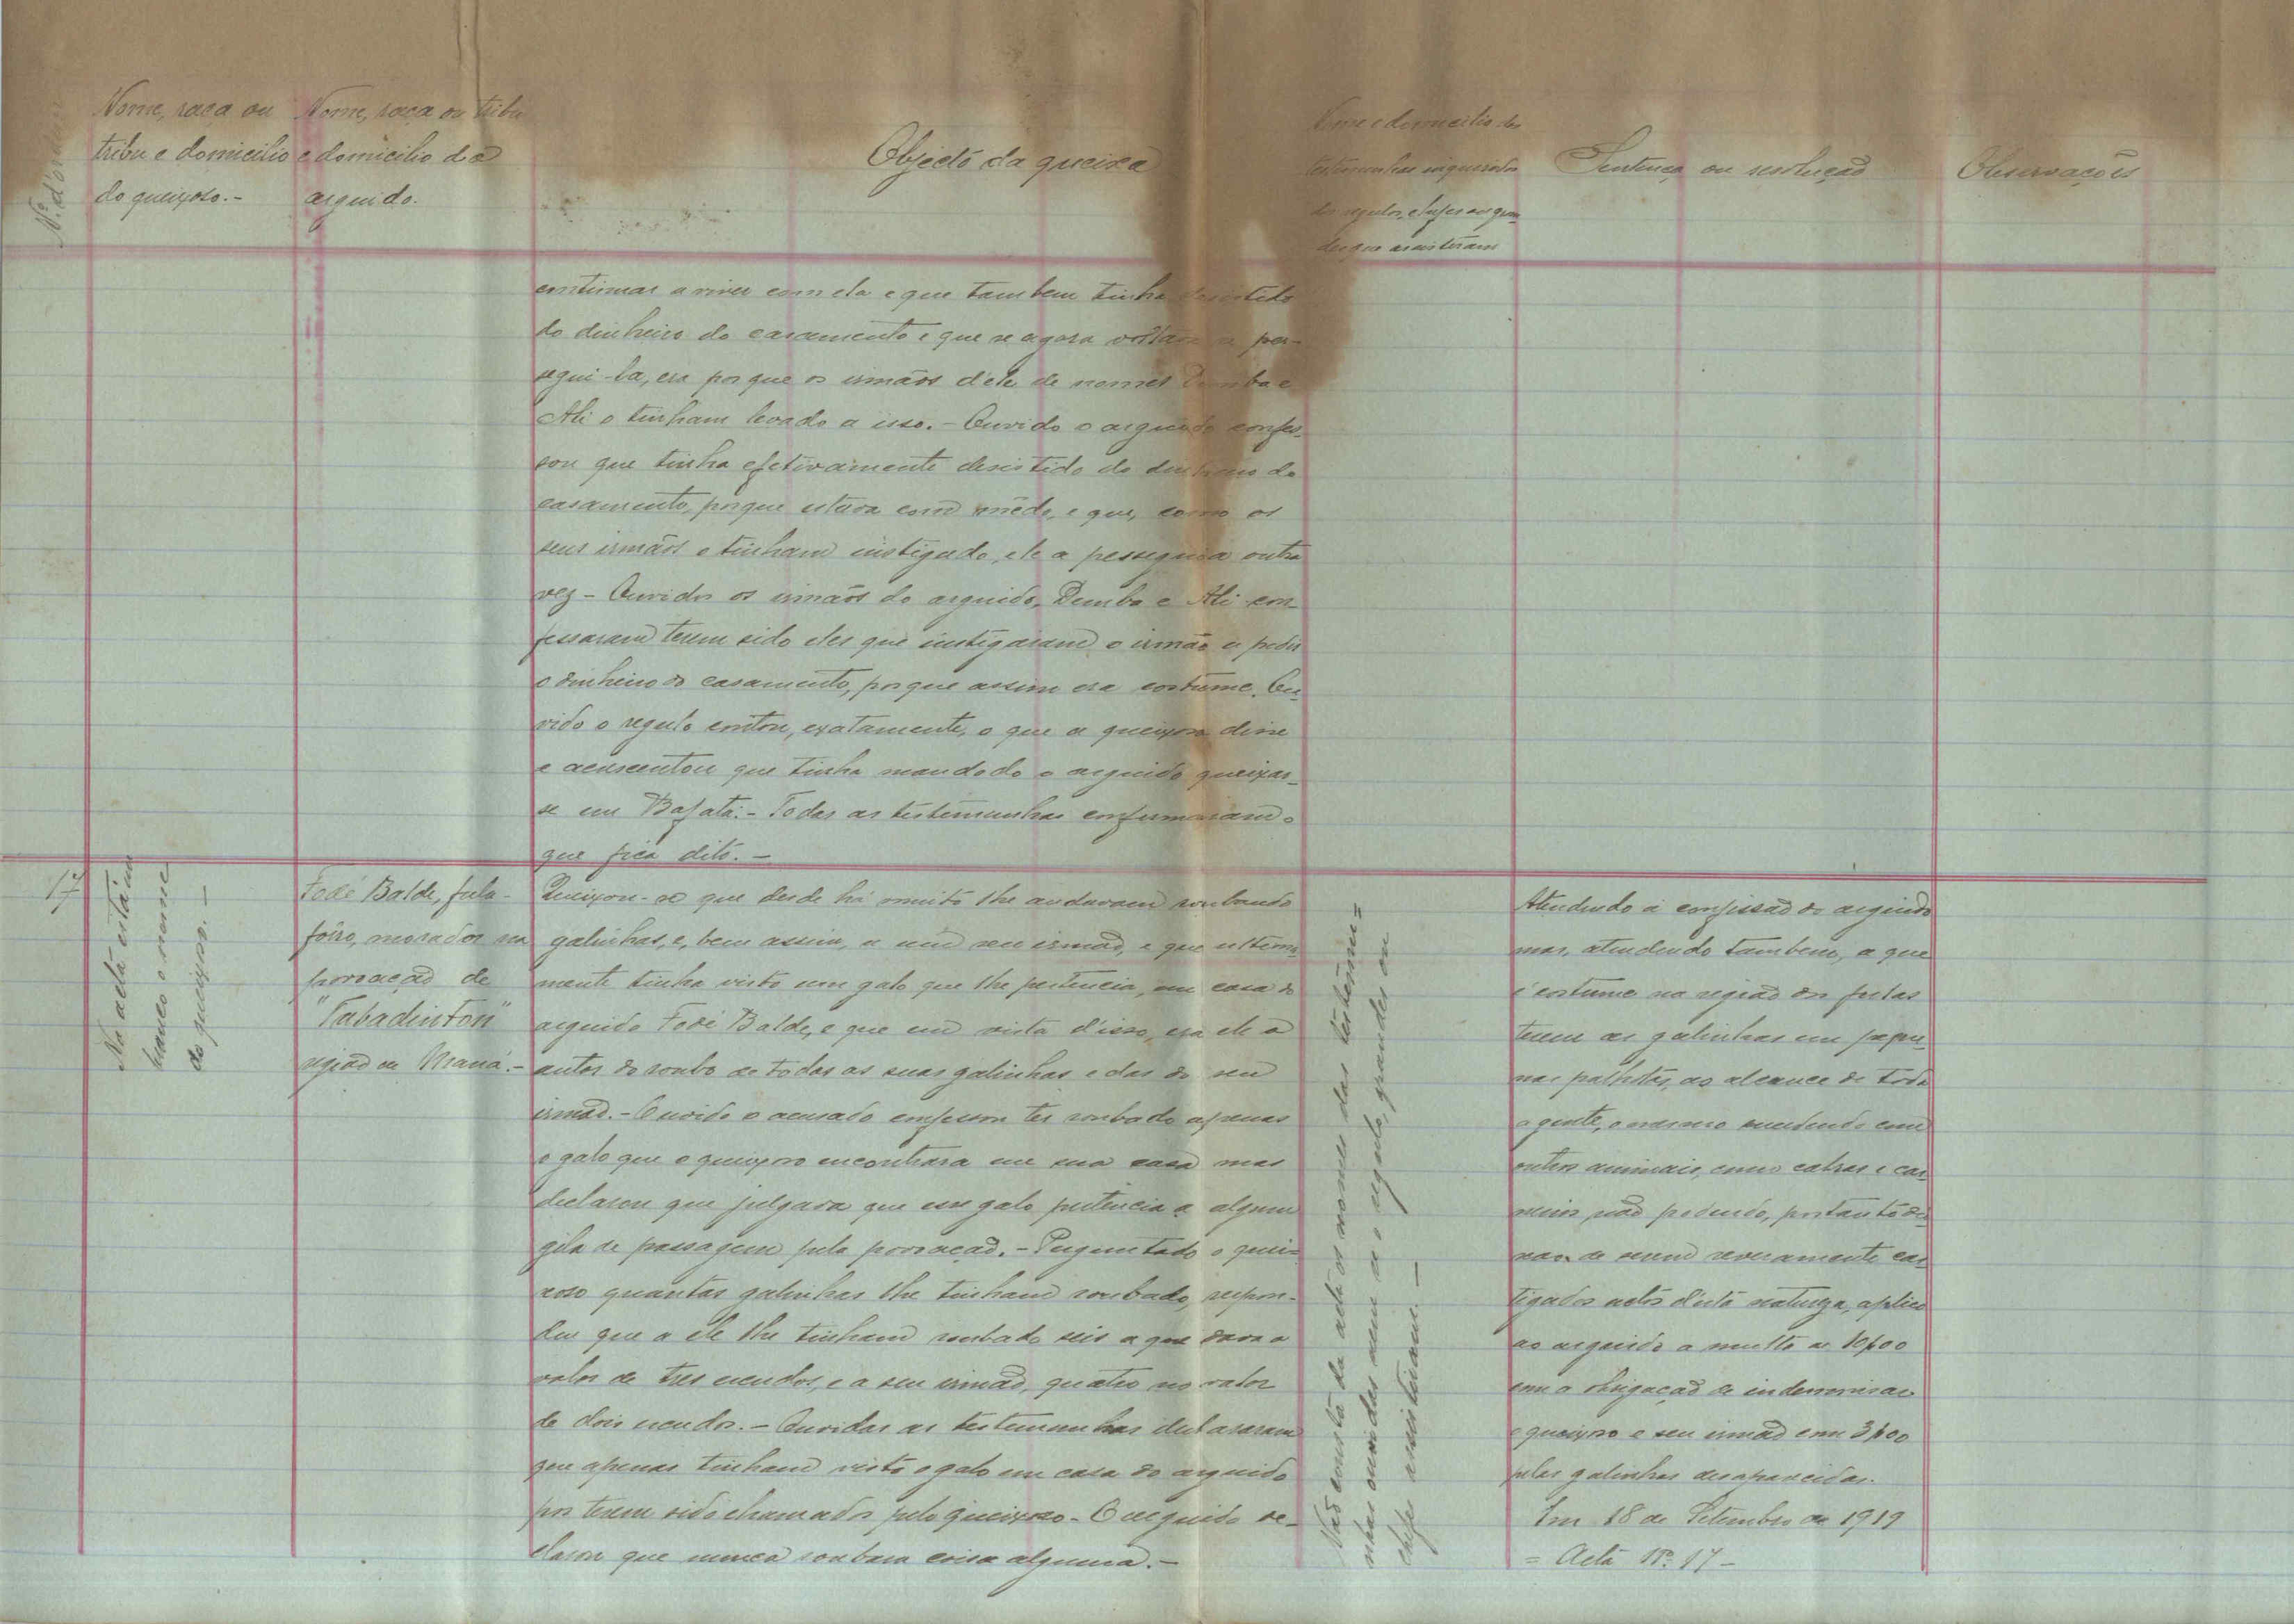 Nº d'ordem
Nome, raça ou
tribu e domicilio
do queixoso.-
Nome, raça ou tribu
e domicilio do
arguido.
Objecto da queixa
Nome e domicilio das
testemunhas inqueridas
dos regulos, chefes ou gran-
des que assistiram
Sentença ou resolução
Observações
continuar a viver com ela e que tambem tinha desistido
do dinheiro do casamento e que se agora voltava a per-
segui-la, era porque os irmãos d'ele de nomes Demba e
Ali o tinham levado a isso.- Ouvido o arguido confes-
sou que tinha efetivamente desistido do dinheiro do
casamento, porque estava com mêdo, e que, como os
seus irmãos o tinham instigado, ele a perseguia outra
vez - Ouvidos os irmãos do arguido, Demba e Ali con-
fessaram terem sido eles que instigaram o irmão a pedir
o dinheiro do casamento, porque assim era costume. Ou-
vido o regulo contou, exatamente, o que a queixosa disse
e acrescentou que tinha mandado o arguido queixar-
se em Bafatá.- Todas as testemunhas confirmaram o
que fica dito.-
17
Na acta está em
branco o nome
do queixoso.-
Fodé Balde, fula-
fôrro, morador na
povoação de
"Tabadinton"
região de Mraná.-
Queixou-se que desde há muito lhe andavam roubando
galinhas, e, bem assim, a um seu irmão, e que ultima-
mente tinha visto um galo que lhe pertencia, em casa do
arguido Fodé Balde, e que em vista d'isso, era ele o
autor do roubo de todas as suas galinhas e das do seu
irmão.- Ouvido o acusado confessou ter roubado apenas
o galo que o queixoso encontrara em sua casa mas
declarou que julgara que esse galo pertencia a algum
gila de passagem pela povoação.- Preguntado o quei-
xoso quantas galinhas lhe tinham roubado, respon-
deu que a ele lhe tinham roubado seis a que dava o
valor de tres escudos, e a seu irmão, quatro no valor
de dois escudos.- Ouvidas as testemunhas declararam
que apenas tinham visto o galo em casa do arguido
por terem sido chamados pelo queixoso.- O arguido de-
clarou que nunca roubara coisa alguma.-
Não consta da acta os nomes das testemu=
nhas ouvidas nem se o regulo, grandes ou
chefes assistiram.-
Atendendo á confissão do arguido
mas, atendendo tambem, a que
é costume na região dos fulas
terem as galinhas em peque-
nas palhotas, ao alcance de toda
a gente, o mesmo sucedendo com
outros animais, como cabras e car-
neiros não podendo, portanto dei-
xar de serem severamente cas-
tigados actos d'esta natureza, aplico
ao arguido a multa de 10$00
com a obrigação de indemnisar
o queixoso e seu irmão com 3$00
pelas galinhas desaparecidas.
Em 18 de Setembro de 1919
= Acta Nº 17 -